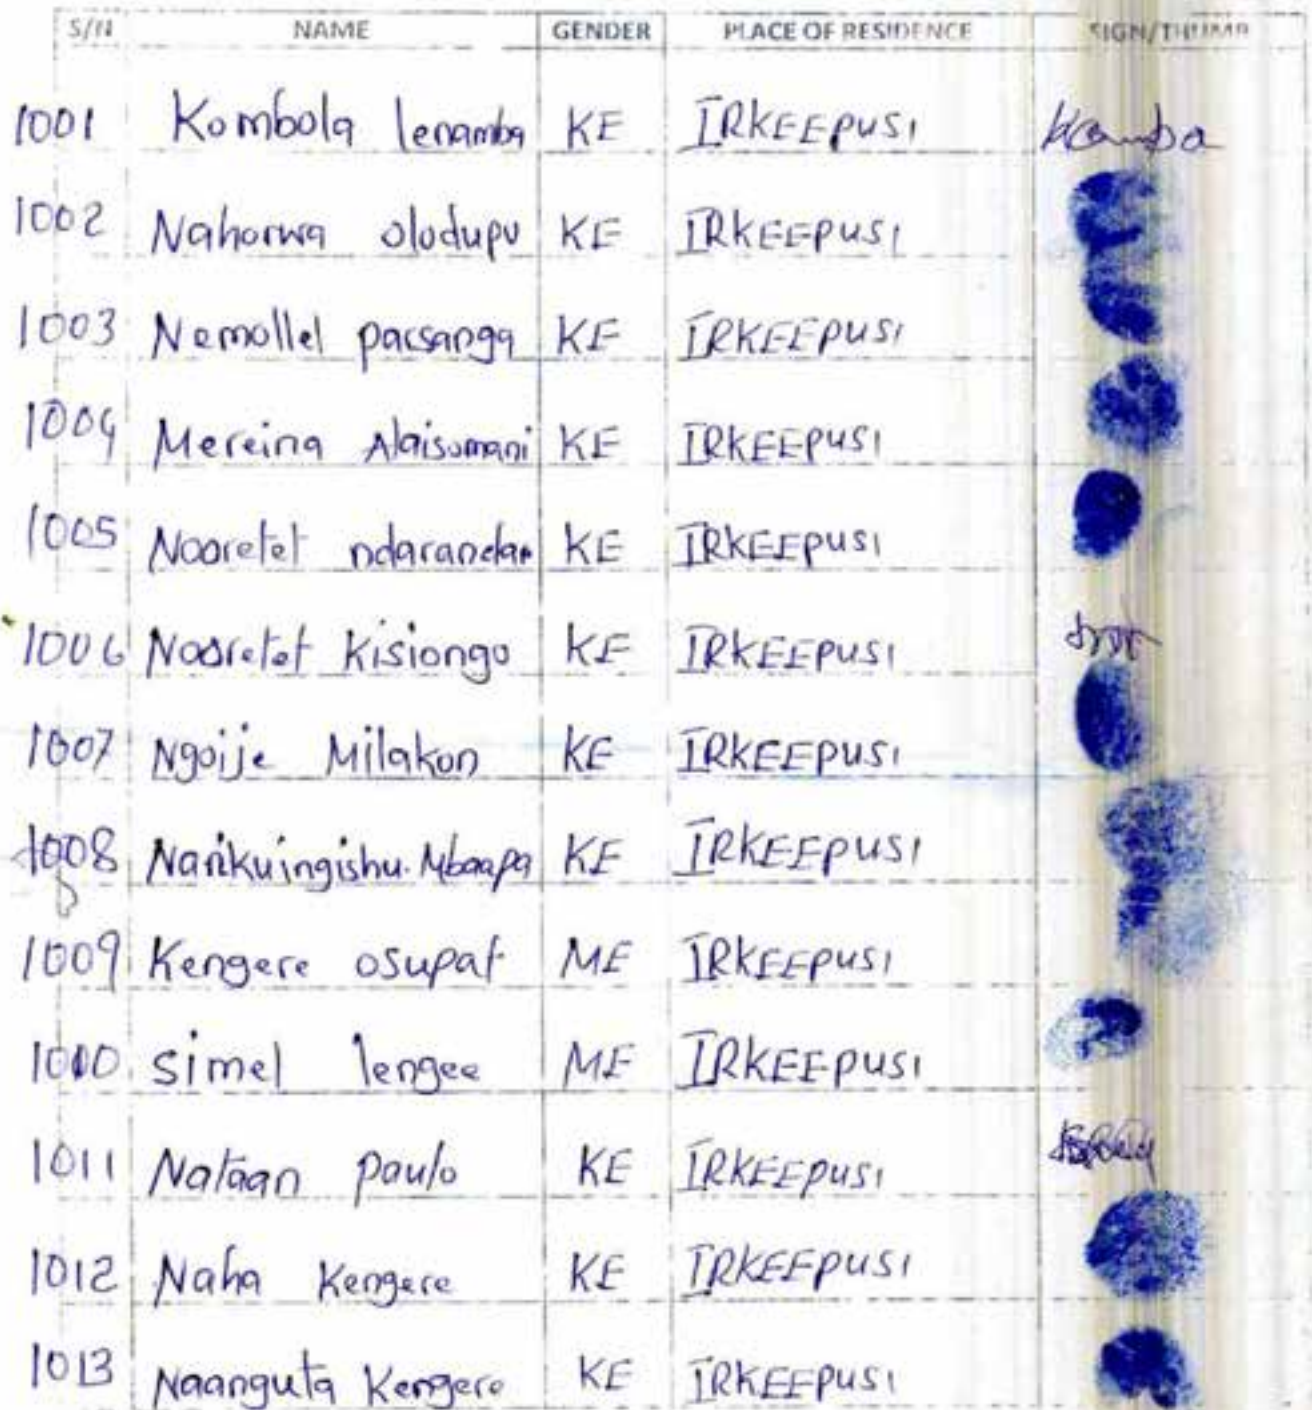 S/N NAME GENDER PLACE OF RESIDENCE SIGN/THUMB
1001 Kombola lenamba KE IRKEEPUSI
1002 Nahorwa olodupu KE IRKEEPUSI
1003 Nemollel parsanga KE IRKEEPUSI
1004 Mereina Alaisumani KE IRKEEPUSI
1005 Nooretet KE IRKEEPUSI
1006 Nooretet Kisiongo KE IRKEEPUSI
1007 Ngoije Milakon KE IRKEEPUSI
1008 Narikuingishu. Mbaapa KE IRKEEPUSI
1009 Kengere osupat ME IRKEEPUSI
1010 simel lengee ME IRKEEPUSI
1011 Nataan paulo KE IRKEEPUSI
1012 Naha Kengere KE IRKEEPUSI
1013 Naanguta Kengere KE IRKEEPUSI